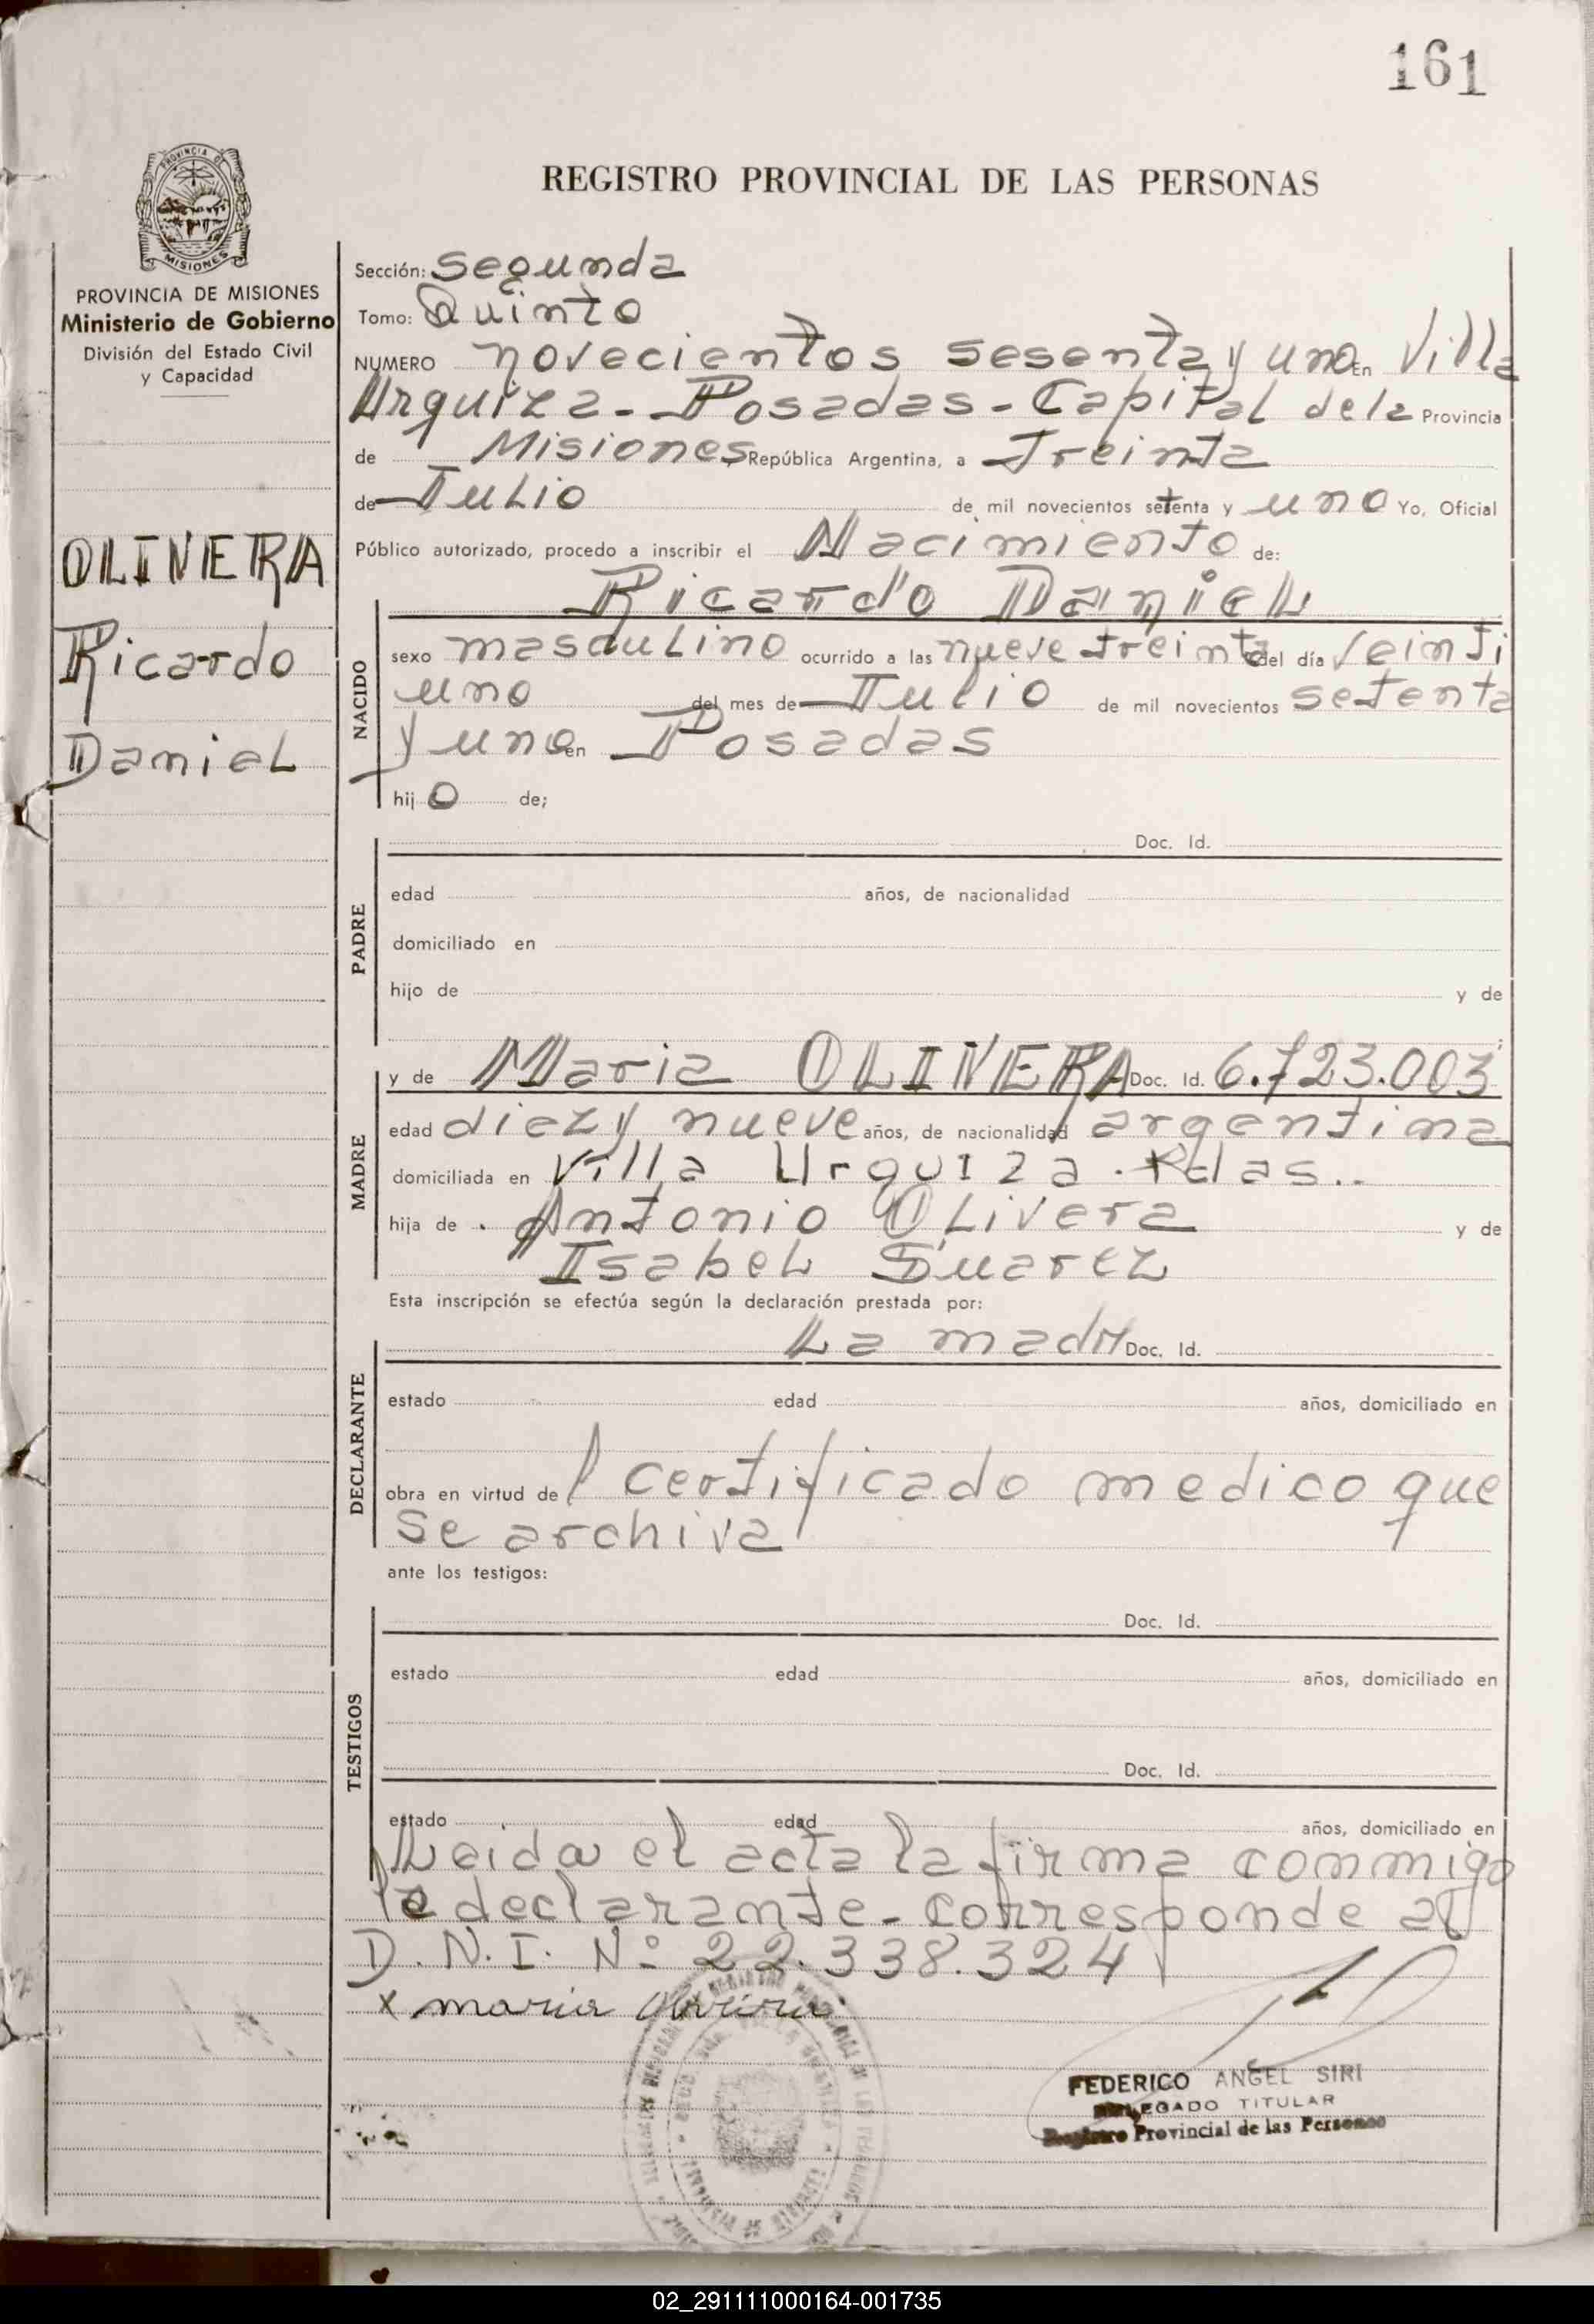 161
PROVINCIA DE MISIONES
REGISTRO PROVINCIAL DE LAS PERSONAS
PROVINCIA DE MISIONES
Ministerio de Gobierno
División del Estado Civil
y Capacidad
OLIVERA
Ricardo
Daniel
Sección: Segunda
Tomo: Quinto
NUMERO novecientos sesenta y uno En Villa
Urquiza - Posadas - Capital de la Provincia
de Misiones República Argentina, a Treinta
de Julio de mil novecientos setenta y uno Yo, Oficial
Público autorizado, procedo a inscribir el Nacimiento de:
Ricardo Daniel
NACIDO
sexo masculino ocurrido a las nueve treinta del día veinti
uno del mes de Julio de mil novecientos setenta
y uno en Posadas
hijo de;
PADRE
Doc. Id.
edad años, de nacionalidad
domiciliado en
hijo de y de
MADRE
y de Maria OLIVERA Doc. Id. 6.723.003
edad diez y nueve años, de nacionalidad argentina
domiciliada en Villa Urquiza. Pdas..
hija de . Antonio Olivera y de
Isabel Suarez
Esta inscripción se efectúa según la declaración prestada por:
DECLARANTE
La madre Doc. Id.
estado edad años, domiciliado en
obra en virtud del certificado medico que
se archiva
ante los testigos:
TESTIGOS
Doc. Id.
estado edad años, domiciliado en
Doc. Id.
estado edad años, domiciliado en
Leida el acta la firma conmigo
la declarante - Corresponde al
D.N.I. Nº 22.338.324
x maria Oliveira
FEDERICO ANGEL SIRI
DELEGADO TITULAR
Registro Provincial de las Personas
02_291111000164-001735